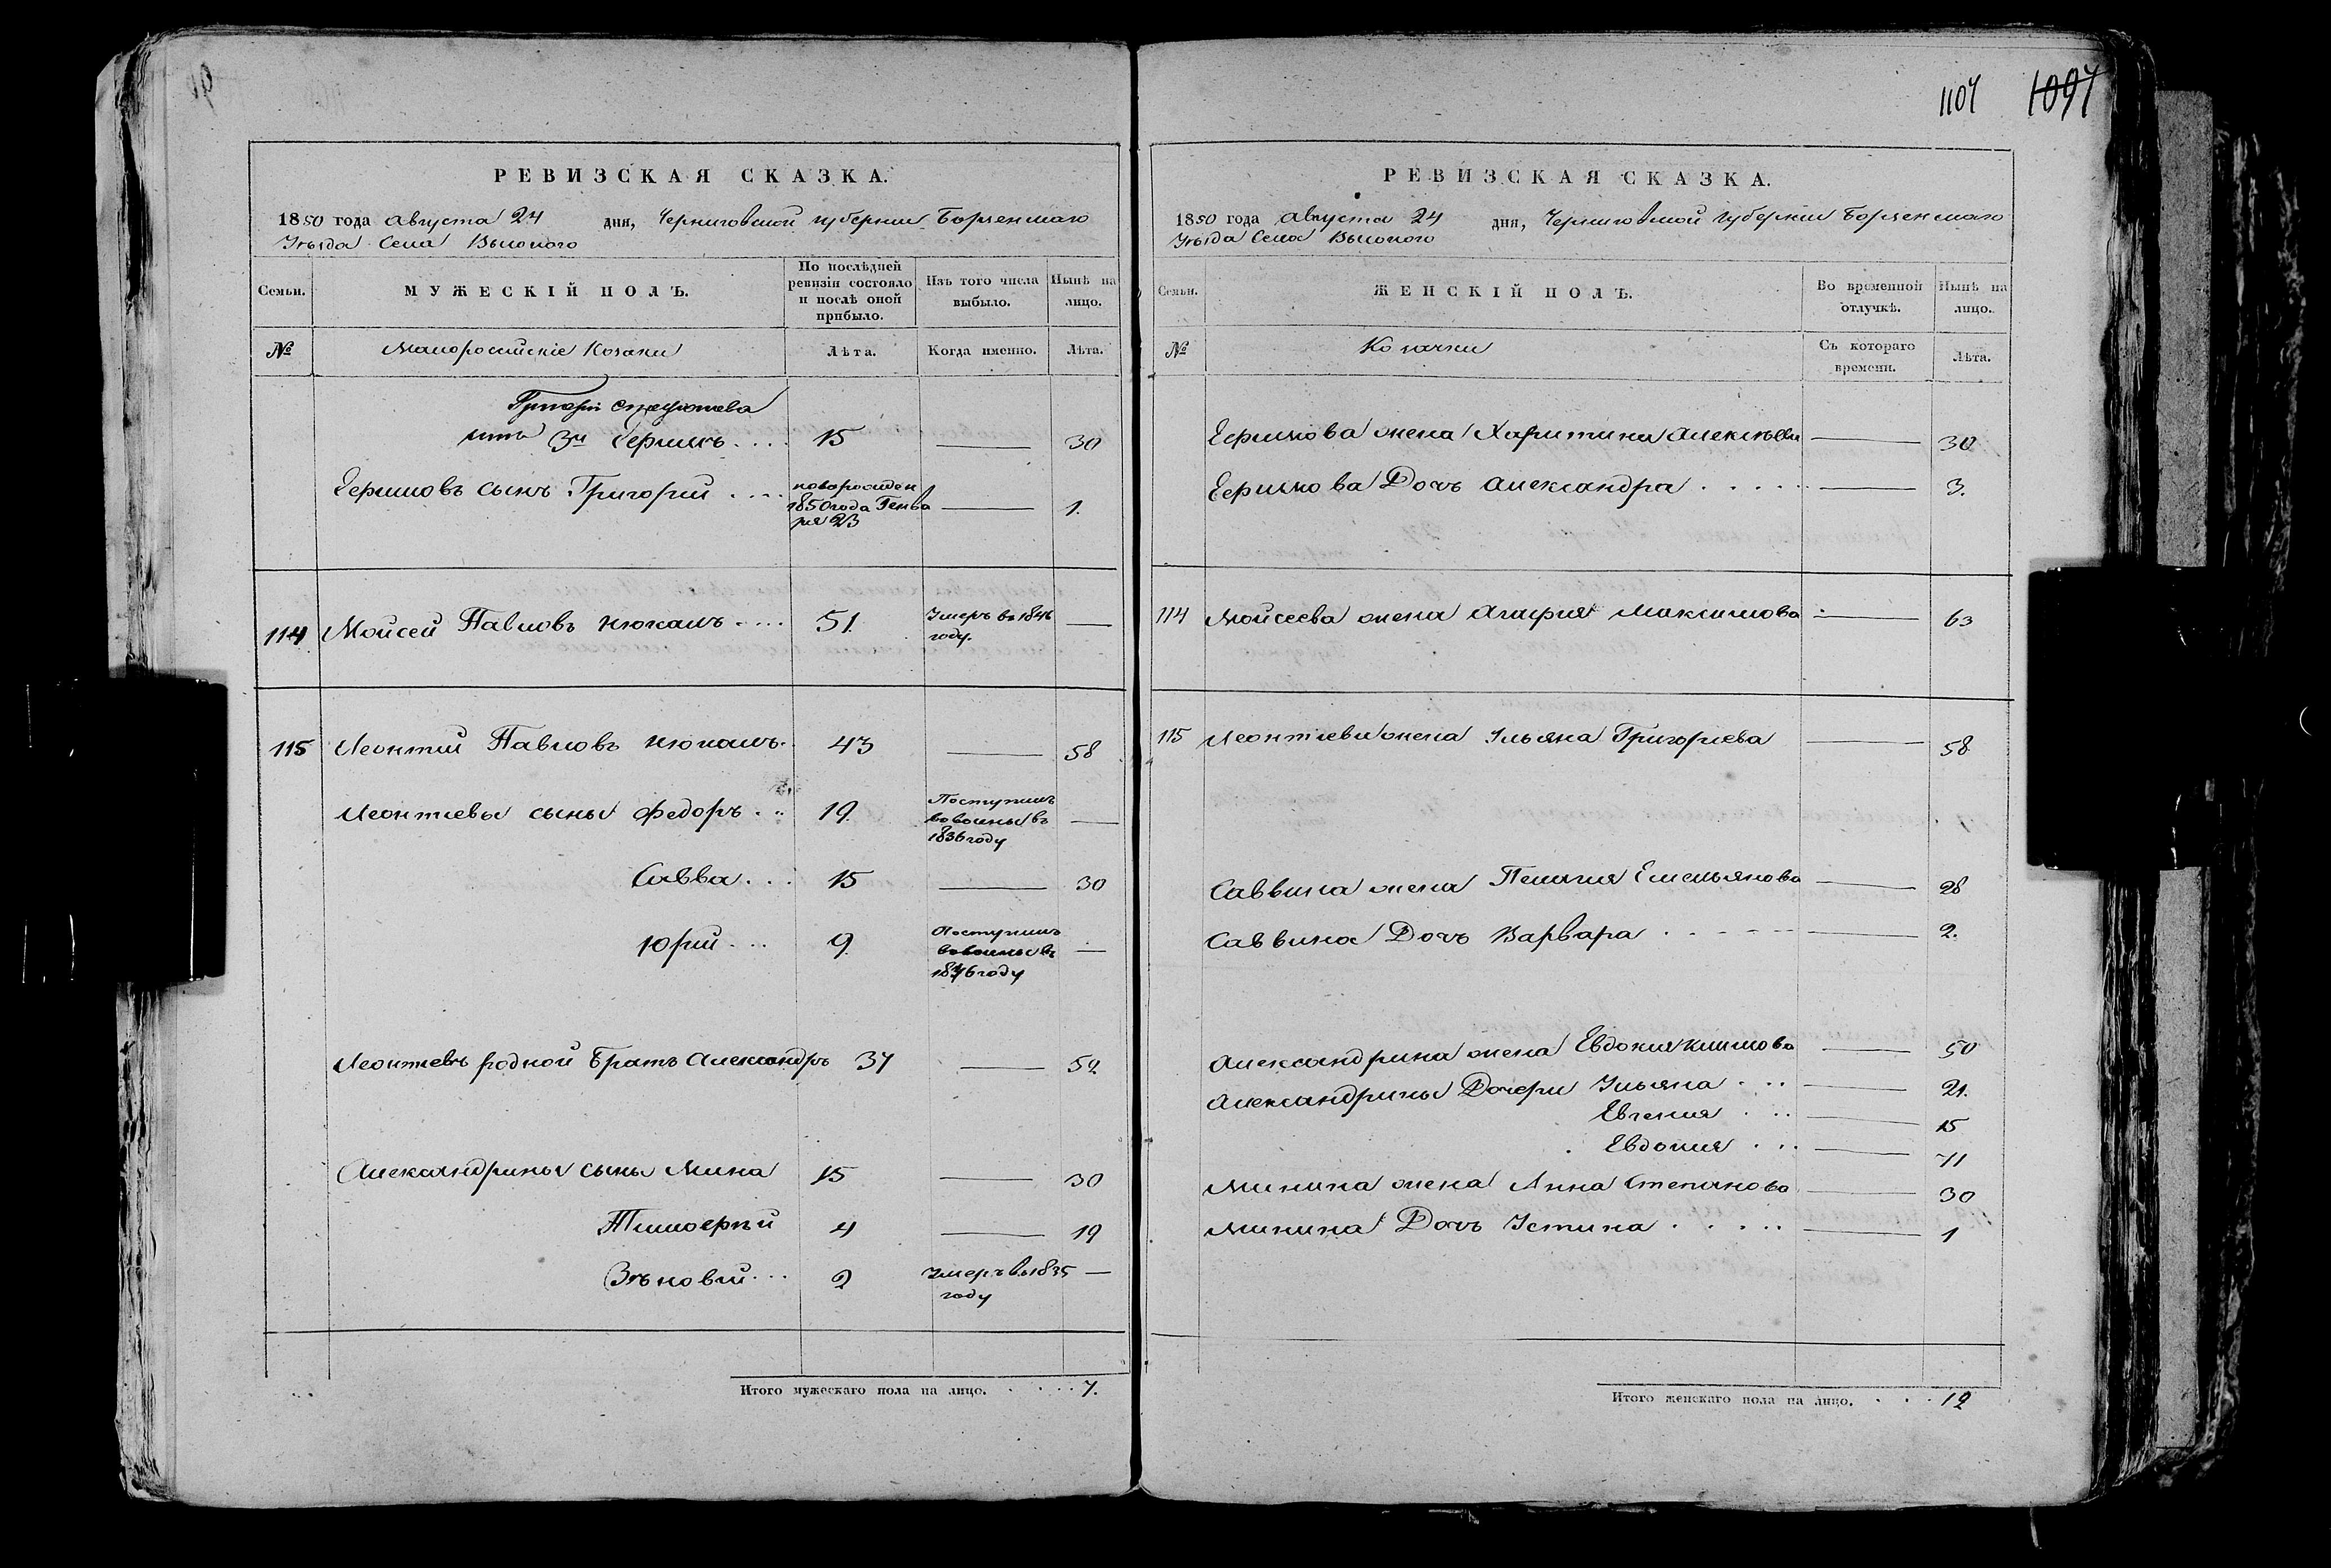 1107 1097
РЕВИЗСКАЯ СКАЗКА.
1850 года августа 24 дня, Черниговской губернии Борзенскаго
Уѣзда Села Высокого
Семьи.
МУЖЕСКІЙ ПОЛЪ.
По послѣдней ревизіи состояло и послѣ оной прибыло.
Изъ того числа выбыло.
Нынѣ на лицо.
№
Малороссійскіе Козаки
Лѣта.
Когда именно.
Лѣта.
Григорія
3й Герасимъ 15 — 30
сынъ Григорій новорожден 1 
1850 года Генва
ря 23
114 Мойсей Павловъ Кюкалъ 51. Умеръ въ 1846 —
году.
115 Леонтий Павловъ Кюкалъ 43 — 58
Леонтіевы сыны Федоръ 19. Поступилъ —
во воины въ
1836 году
Савва 15 — 30
Юрий 9. Поступилъ —
во воины въ
1846 году
Леонтіевъ родной Братъ Александръ 37 — 52
Александрины сыны Мина 15 — 30
Тимоѳѣй 4 — 19
Зѣновий 2 Умеръ въ 1835 —
году
Итого мужескаго пола на лицо. 7.
РЕВИЗСКАЯ СКАЗКА.
1850 года августа 24 дня, Черниговской губернии Борзенскаго
Уѣзда Села Высокого
Семьи.
ЖЕНСКІЙ ПОЛЪ.
Во временной отлучкѣ.
Нынѣ на лицо.
№
Козачки
Съ котораго времени.
Лѣта.
жена Харитина Алексѣева — 30
Дочь Александра — 3.
114 Мойсеева жена Агафия Максимова — 63
115 Леонтіева жена Ульяна Григориева — 58
Саввина жена Пелагия Емельянова — 28
Саввина Дочь Варвара — 2.
Александрина жена Евдокия Климова — 50
Александрины Дочери Ульяна — 21.
Евгения — 15
Евдокия — 11
Минина жена Анна Степанова — 30
Минина Дочь Устина — 1
Итого женскаго пола на лицо. 12